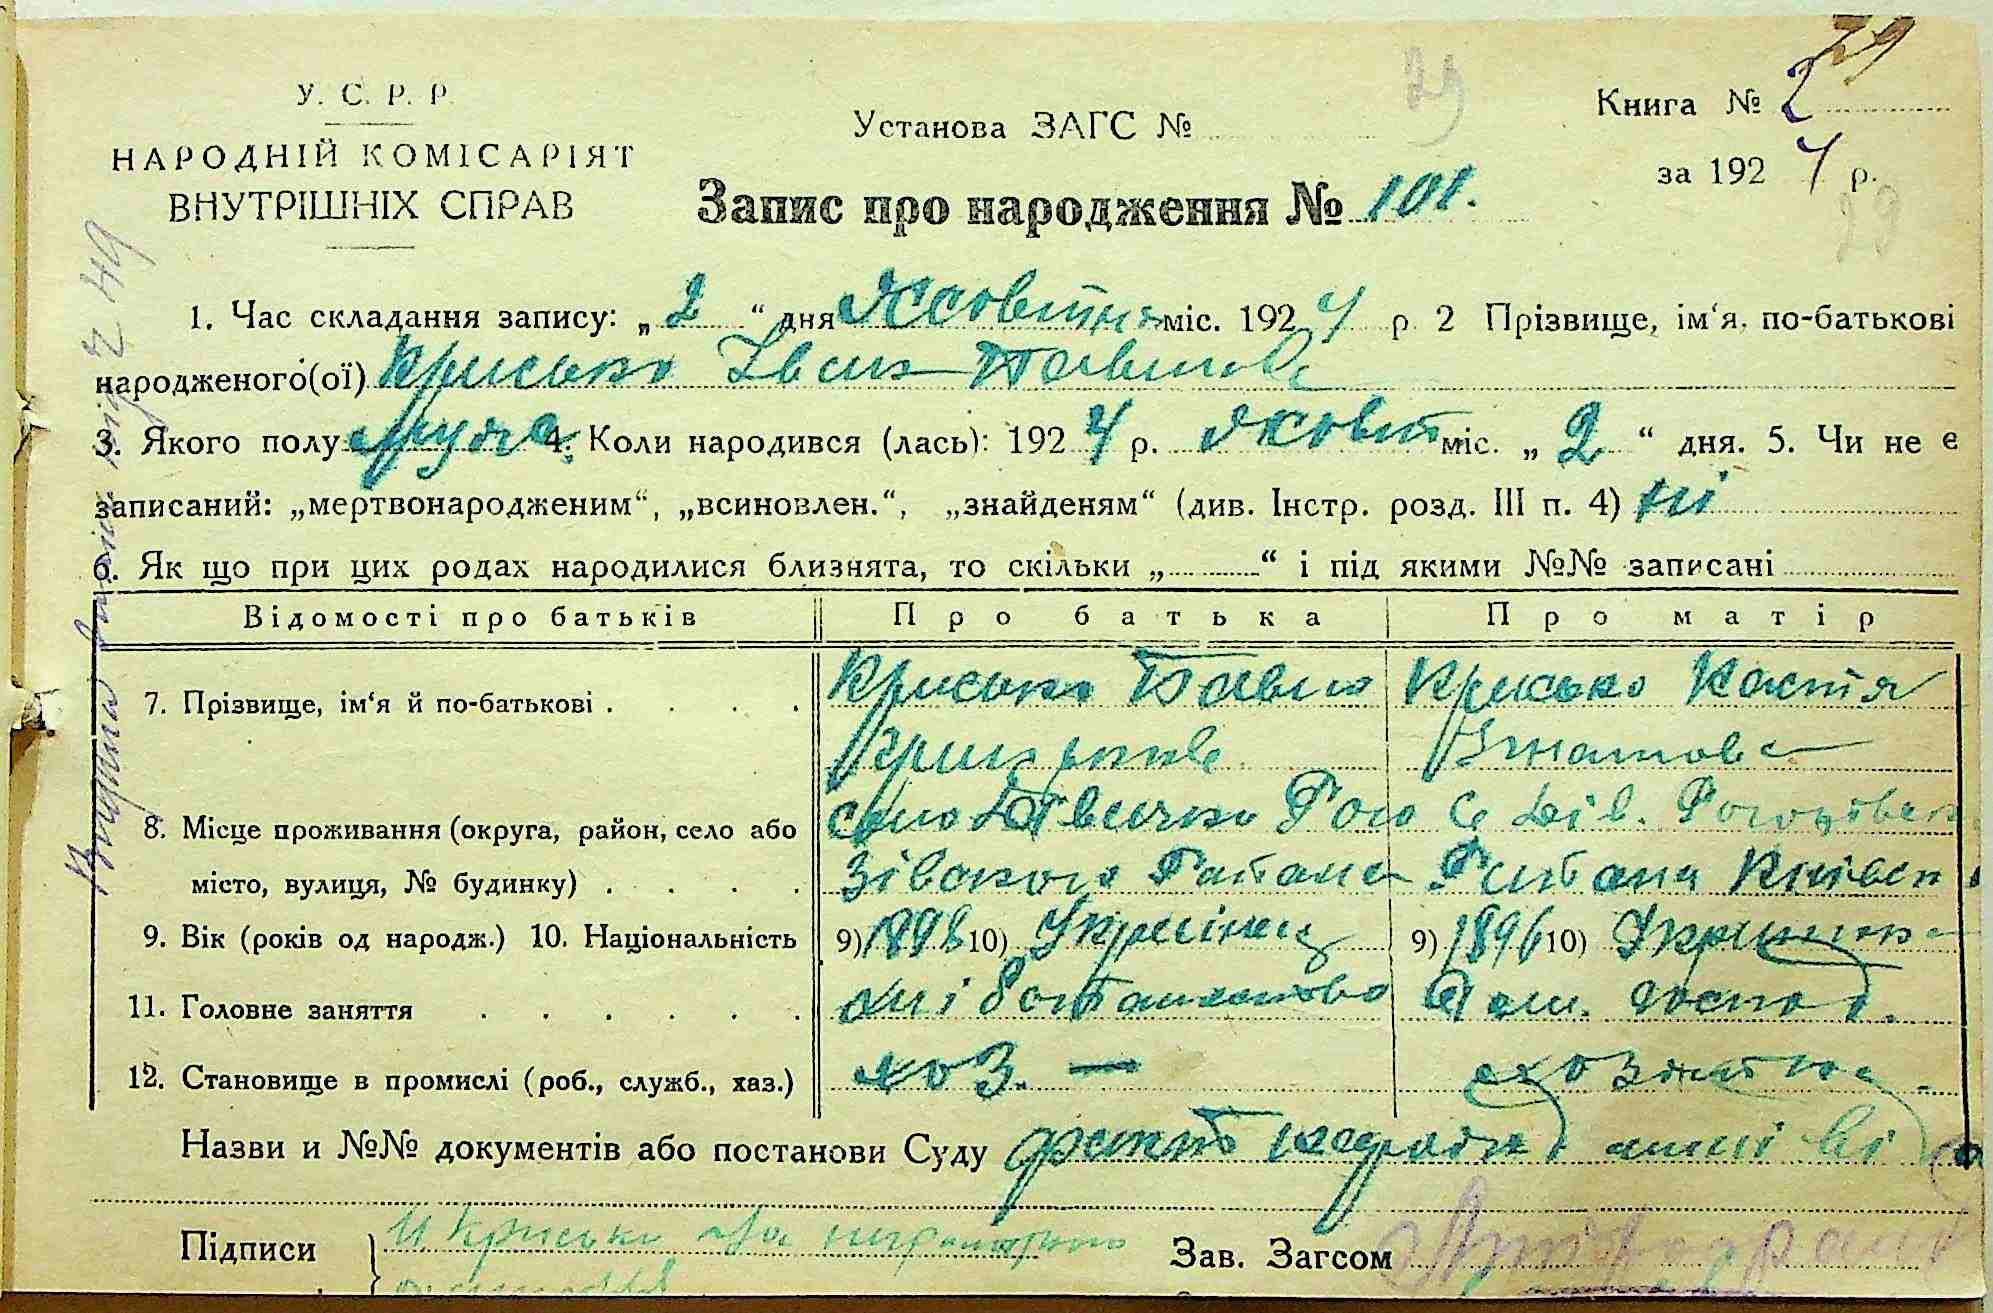 29
У. С. Р. Р.
НАРОДНІЙ КОМІСАРІЯТ
ВНУТРІШНІХ СПРАВ
Установа ЗАГС №
29
Книга № 2
за 1924 р.
29
Запис про народження № 101.
1. Час складання запису: „ 2 “ дня Жовтня міс. 1924 р 2 Прізвище, ім‘я, по-батькові
народженого(ої) Крисько Іван Павлов
3. Якого полу муж 4. Коли народився (лась): 1924 р. Жовт міс. „ 2 “ дня. 5. Чи не є
записаний: „мертвонародженим“, „всиновлен.“, „знайденям“ (див. Інстр. розд. III п. 4) ні
6. Як що при цих родах народилися близнята, то скільки „ “ і під якими №№ записані
Відомості про батьків Про батька Про матір
7. Прізвище, ім‘я й по-батькові Крисько Павло Крисько Настя
Игнатова
8. Місце проживання (округа, район, село або село Дівички Рого с. Дів. Рогозівск
місто, вулиця, № будинку) зівского Району Района Київск
9. Вік (років од народж.) 10. Національність 9) 1898 10) Українец 9) 1896 10) Українка
11. Головне заняття хліборобство дом. господ.
12. Становище в промислі (роб., служб., хаз.) хоз. —
Назви и №№ документів або постанови Суду
Підписи Крисько за неграмотного
Зав. Загсом